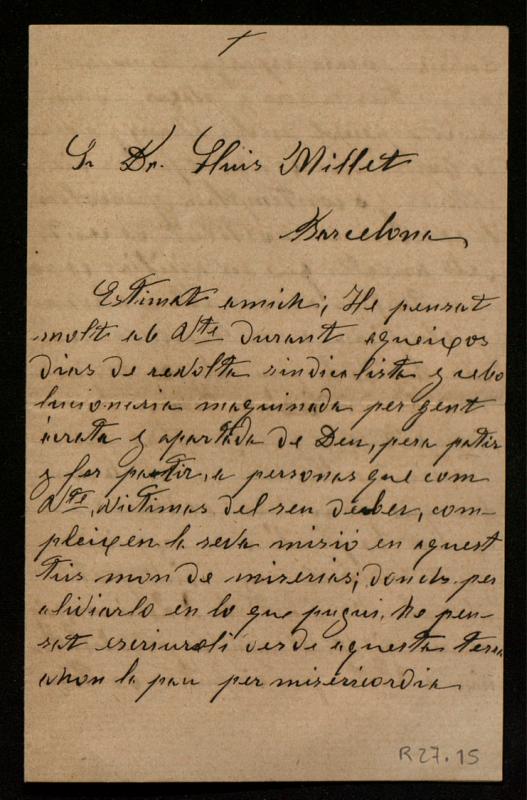 +
Sr Dn. Lluis Millet
Barcelona
Estimat amich; He pensat
molt ab Vtè durant aqueixos
dias de revolta sindicalista y rebo
lucionaria maquinada per gent
àcrata y apartada de Deu, pera patir
y fer patir, a personas que com
Vtè, victimas del seu deber, com-
pleixen la seva misió en aquest
tris mon de miserias; donchs per
aliviarlo en lo que pugui, he pen-
sat escriurali desde aquesta terra
ahon la pau per misericordia
R27.15